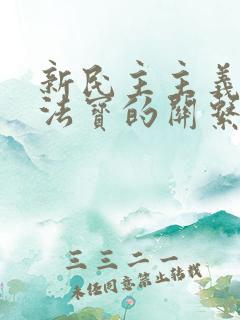 新民主主義
法寶的關繫
三三二一
未经同意禁止转载